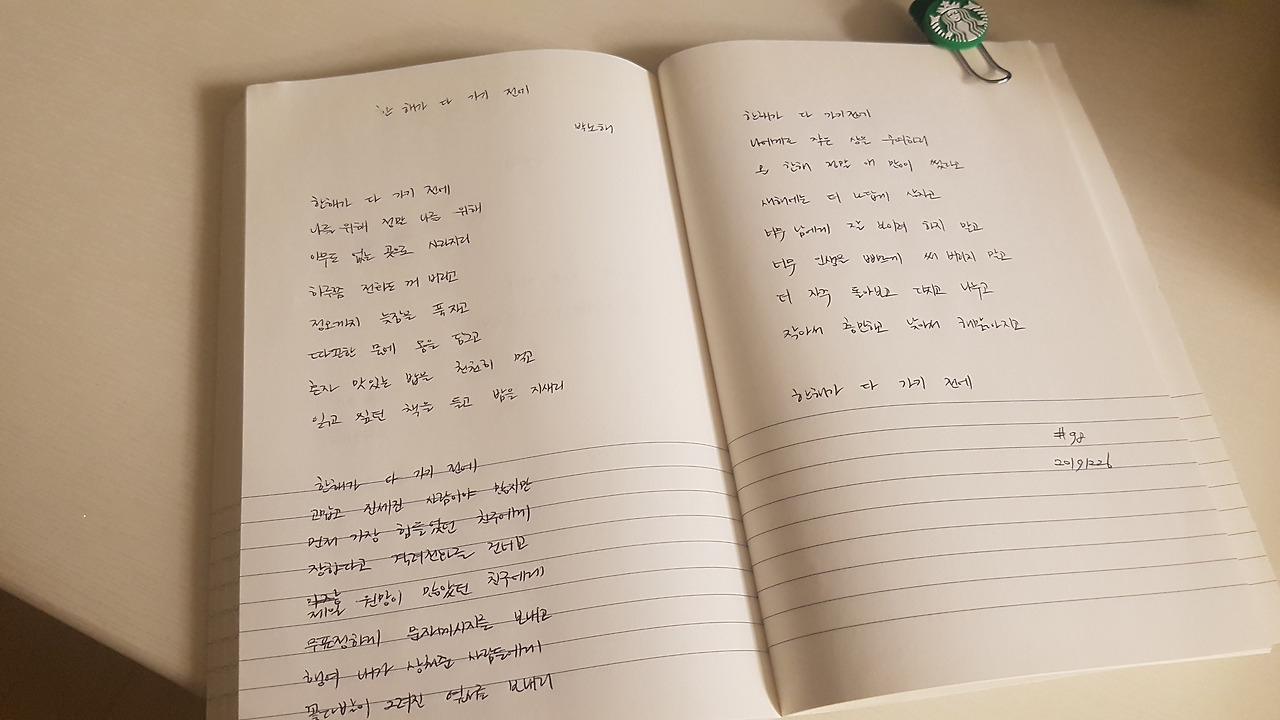 한 해가 다 가기 전에
박노해
한해가 다 가기 전에
나를 위해 정말 나를 위해
아무도 없는 곳으로 사라지리
하루쯤 전화도 꺼 버리고
정오까지 늦잠을 푹 자고
따끈한 물에 몸을 담그고
혼자 맛있는 밥을 천천히 먹고
읽고 싶던 책을 들고 밤을 지새리
한해가 다 가기 전에
고맙고 진 사람이야 많지만
먼저 가장 힘들었던 친구에게
장하다고 격려전화를 건네고
제일 원망이 많았던 친구에게
무표정하게 문자메시지를 보내고
행여 내가 상처준 사람들에게
꽃다발이 그려진 엽서를 보내리
한해가 다 가기 전에
나에게로 작은 상을 수여하리
올 한해 정말 애 많이 썼다고
새해에는 더 나답게 살라고
너무 남에게 잘 보이려 하지 말고
너무 인생을 빠르게 써 버리지 말고
더 자주 돌아보고 다지고 나누고
작아서 충만하고 낮아서 해맑아지고
한해가 다 가기 전에
#98
20191226